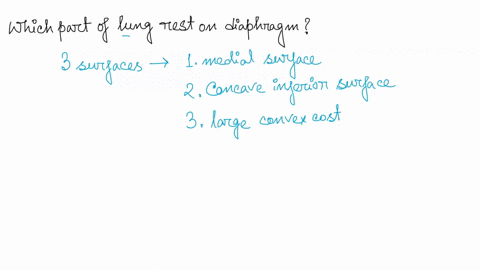 Which part of lung rest on diaphragm?
3 surfaces → 1. medial surface
2. Concave inferior surface
3. large convex cost